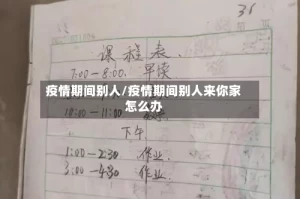 36
课程表.
7:00-8:00. 早读
疫情期间别人/疫情期间别人来你家
怎么办
10:00-11:00
下午
1:00-2:30 作业.
3:00-4:30 作业.